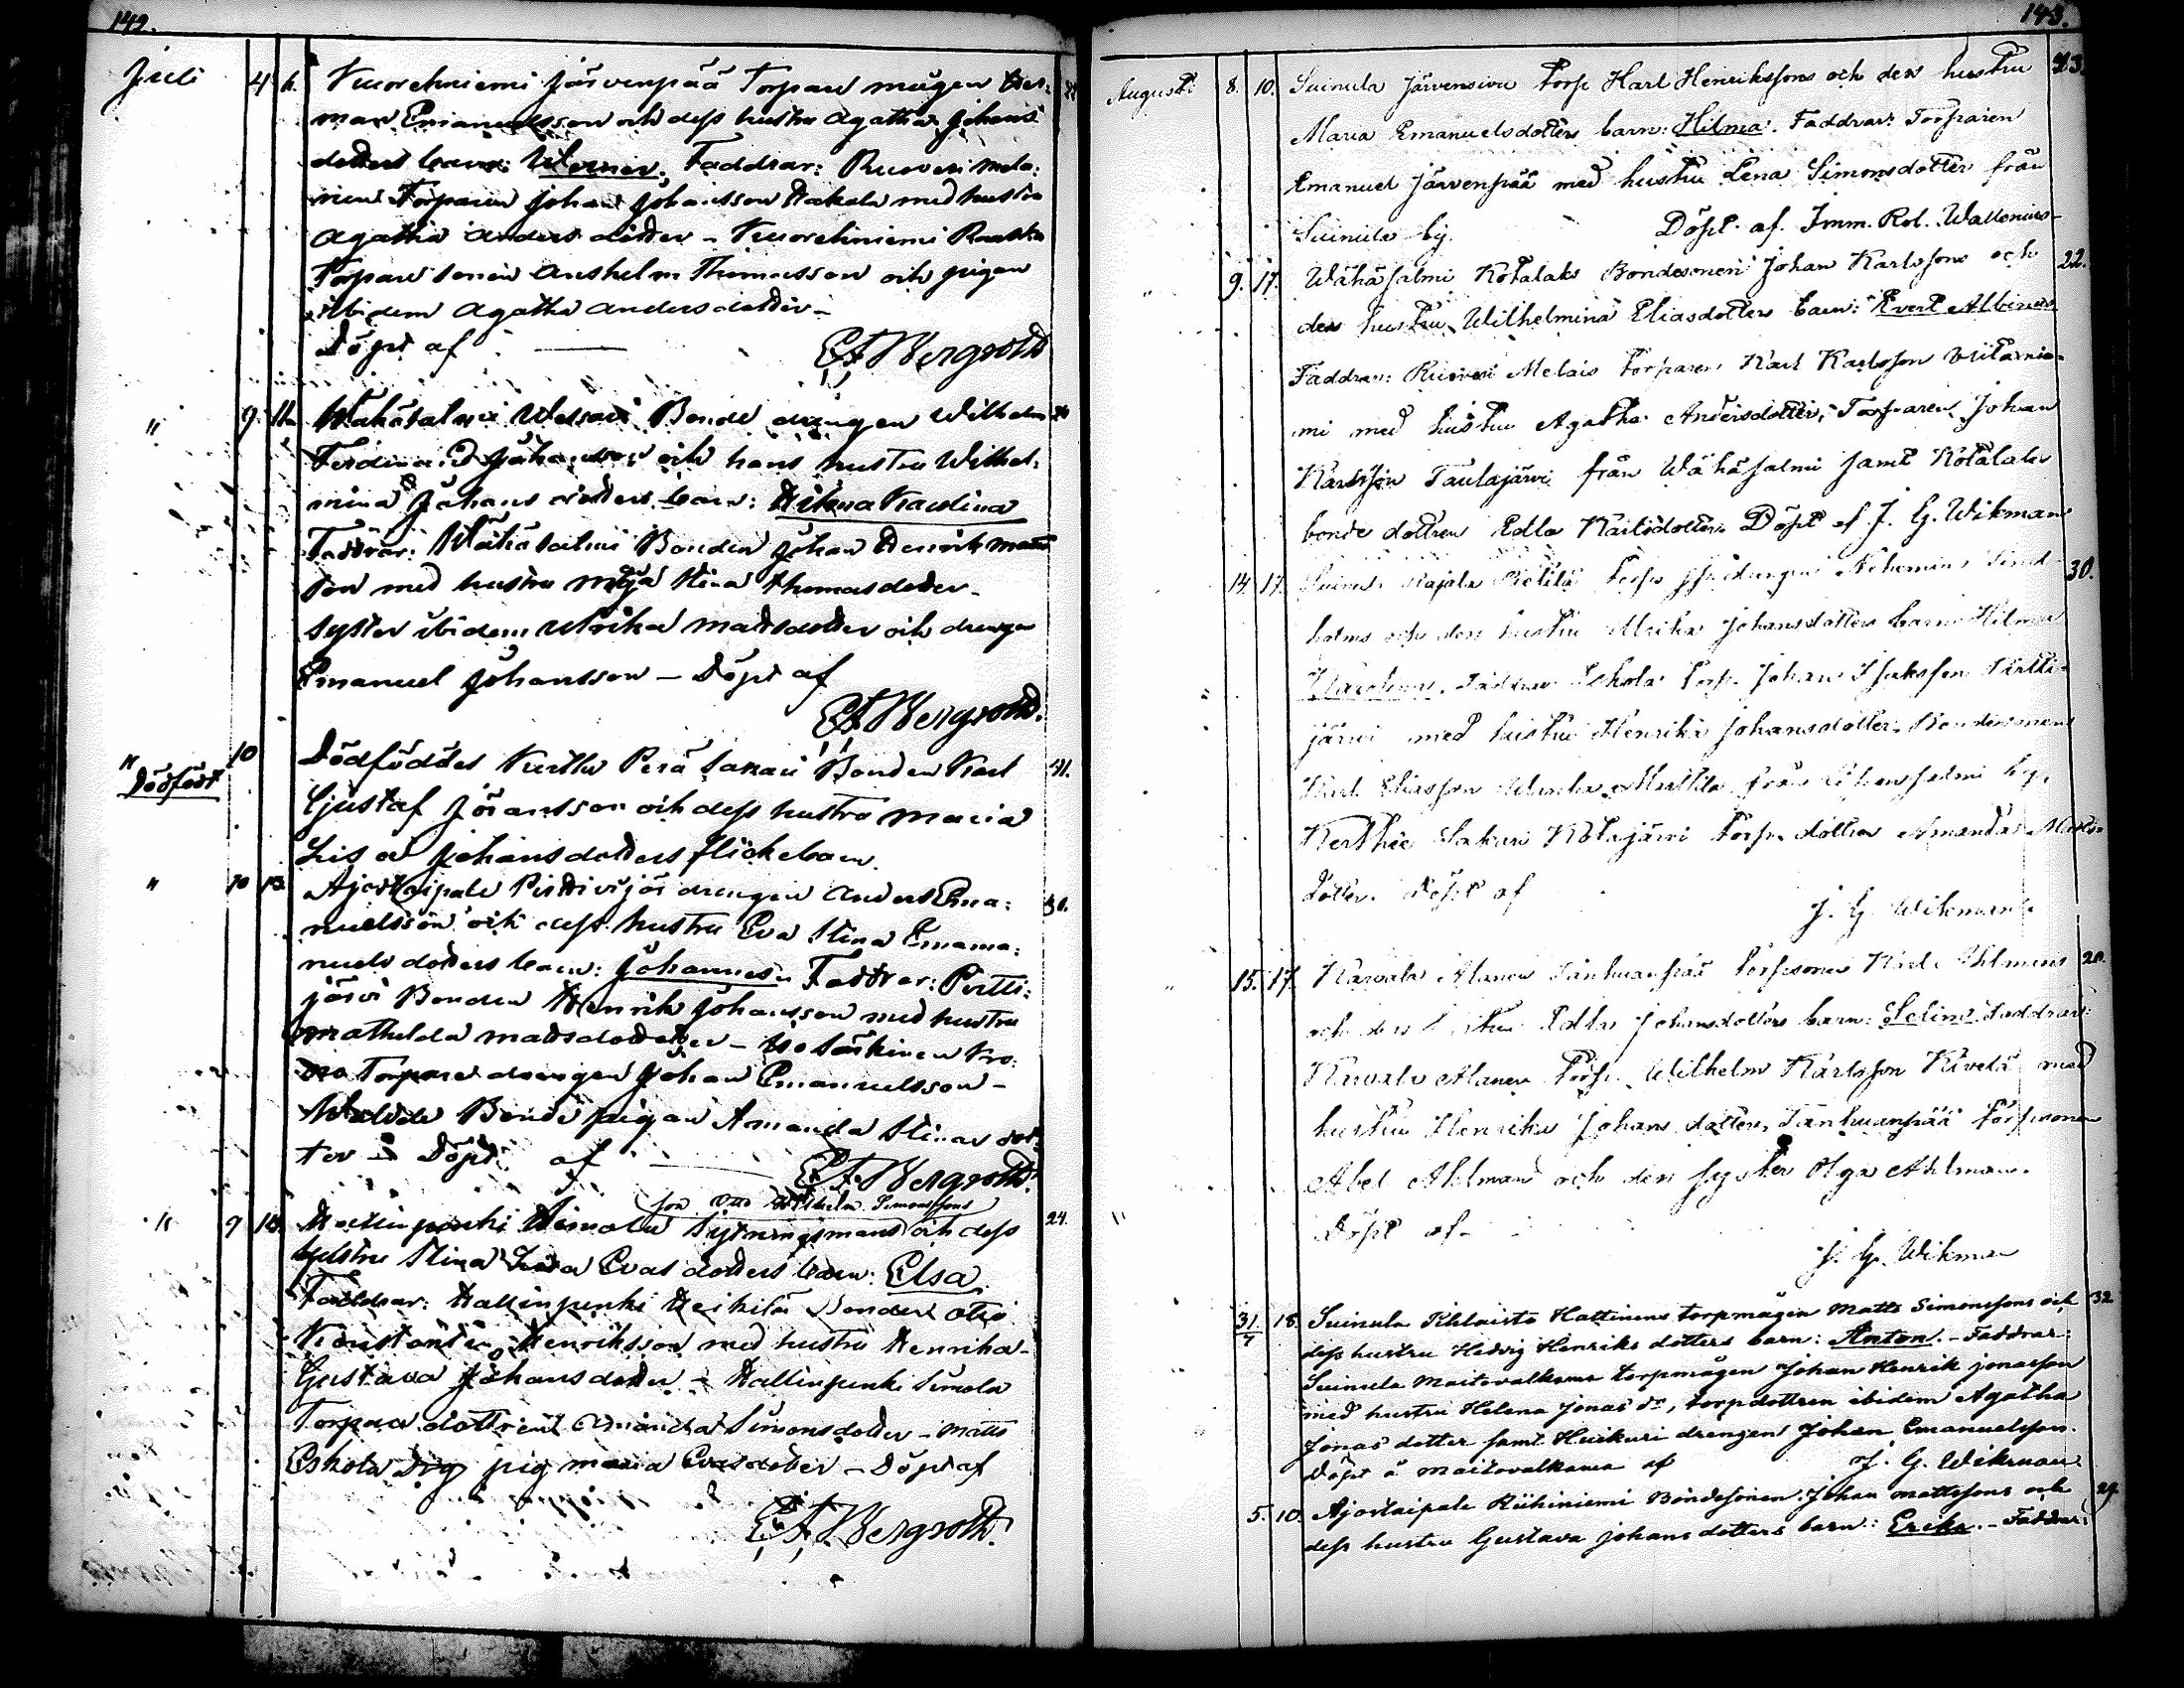 142.
Juli 4. 6. Kuorehniemi Järvenpää Torpare mågen Her=
man Emanuelsson och dess hustru Agatha Johans
dotters barn: Werner, Faddrar: Ruovesi Mela:
Torparen Johan Johansson Hakala med hustru
Agatha Anders dotter – Kuorehniemi
Torpare sonen Anshelm Thomasson och pigan
ibidem Agatha Andersdotter –
Döpt af E A Bergroth
" 9. 11. Wähäsalmi Wessari Bonde drängen Wilhelm
Ferdinand Johansson och hans hustru Wilhel:
mina Johans dotters barn: Hilma Karolina
Faddrar: Wähäsalmi Bonden Johan Henrik Matts
son med hustru Maja Stina Thomasdotter –
syster ibidem Ulrika Mattsdotter och drengen
Emanuel Johansson – Döpt af
E A Bergroth.
" Dödfödt 10 Dödföddes Kurttu Perä Sakari Bonden Karl 31.
Gustaf Jöransson och dess hustru Maria
Lisa Johansdotters flickebarn.
" 10 13. Ajostaipale drengen Anders Ema: 30.
nuelsson och dess hustru Eva Stina Emanu:
nuels dotters barn: Johannes. Faddrar: Pertti:
järvi Bonden Henrik Johansson med hustru
Mathilda Matsdotter – Iso Särkinen
Torpare drengen Johan Emanuelsson –
Bonde pigan Amanda Stinas dot
ter – Döpt af E A Bergroth.
son Otto Wilhelm Simonssons
" 9 Hallinpenki Simola Sytningsmans och dess 24.
hustru Stina Lisa Evas dotters barn: Elsa.
Faddrar: Hallinpenki Heikilä Bonden Otto
Konstantin Henriksson med hustru Henrika
Gustava Johansdotter – Hallinpenki Simola
Torpare dottren Amanda Simonsdotter – Matts
Eskola pig Maria Evasdotter – Döpt af
E A Bergroth.
143.
Augusti 8. 10. Suinula Järvensivu torp. Karl Henrikssons och dess hustru 23.
Maria Emanuelsdotters barn: Hilma. Faddrar: Torparen
Emanuel Järvenpää med hustru Lena Simonsdotter från
Suinula by. Döpt af Imm. Rob. Wallenius
" 9. 17. Wähäsalmi Kotalaks Bondesonen Johan Karlssons och 22.
dess hustru Wilhelmina Eliasdotters barn: Evert Albinus
Faddrar: Ruovesi Melais torparen Karl Karlsson Wiitanie-
mi med hustru Agatha Andersdotter, Torparen Johan
Karlsson Taulajärvi från Wähäsalmi samt Kotalaks
bonde dottren Edla Karlsdotter. Döpt af J. G. Wikman
14. 17. Suinula Rajala Torp Nehemias Lind- 30.
holms och dess hustru Ulrika Johansdotters barn: Hilma
Karolina. Faddrar: Eskola Torp. Johan Isaksson Pertti-
järvi med hustru Henrika Johansdotter. Bondesonen
Karl Eliasson från by,
Sakari Kotajärvi Torp. dottren Amanda
dotter. Döpt af
J. G. Wikman.
" 15. 17. Karvala Alanen Tanhuanpää torpsonen Karl Ahlmans 20.
och dess hustru Edla Johansdotters barn: Selim. Faddrar:
Karvala Alanen Torp. Wilhelm Karlsson Kivelä med
hustru Henrika Johans dotter, Tanhuanpää torpsonen
Abel Ahlman och dess syster Olga Ahlman.
" Döpt af
J. G. Wikman
31/7 18. Suinula Ihlaisto Hattinens torpmågen Matts Simonssons och 32
dess hustru Hedvig Henriks dotters barn: Anton. – Faddrar:
Suinula Maitovalkama torpmågen Johan Henrik Jonasson
med hustru Helena Jonas dr, torpdottren ibidem Agatha
Jonas dotter samt Huikuri drengen Johan Emanuelsson.
Döpt å Maitovalkama af J. G. Wikman
5. 10. Ajostaipale Riihiniemi Bondesonen Johan Mattssons och 29.
dess hustru Gustava Johans dotters barn: Erika. – Faddrar: